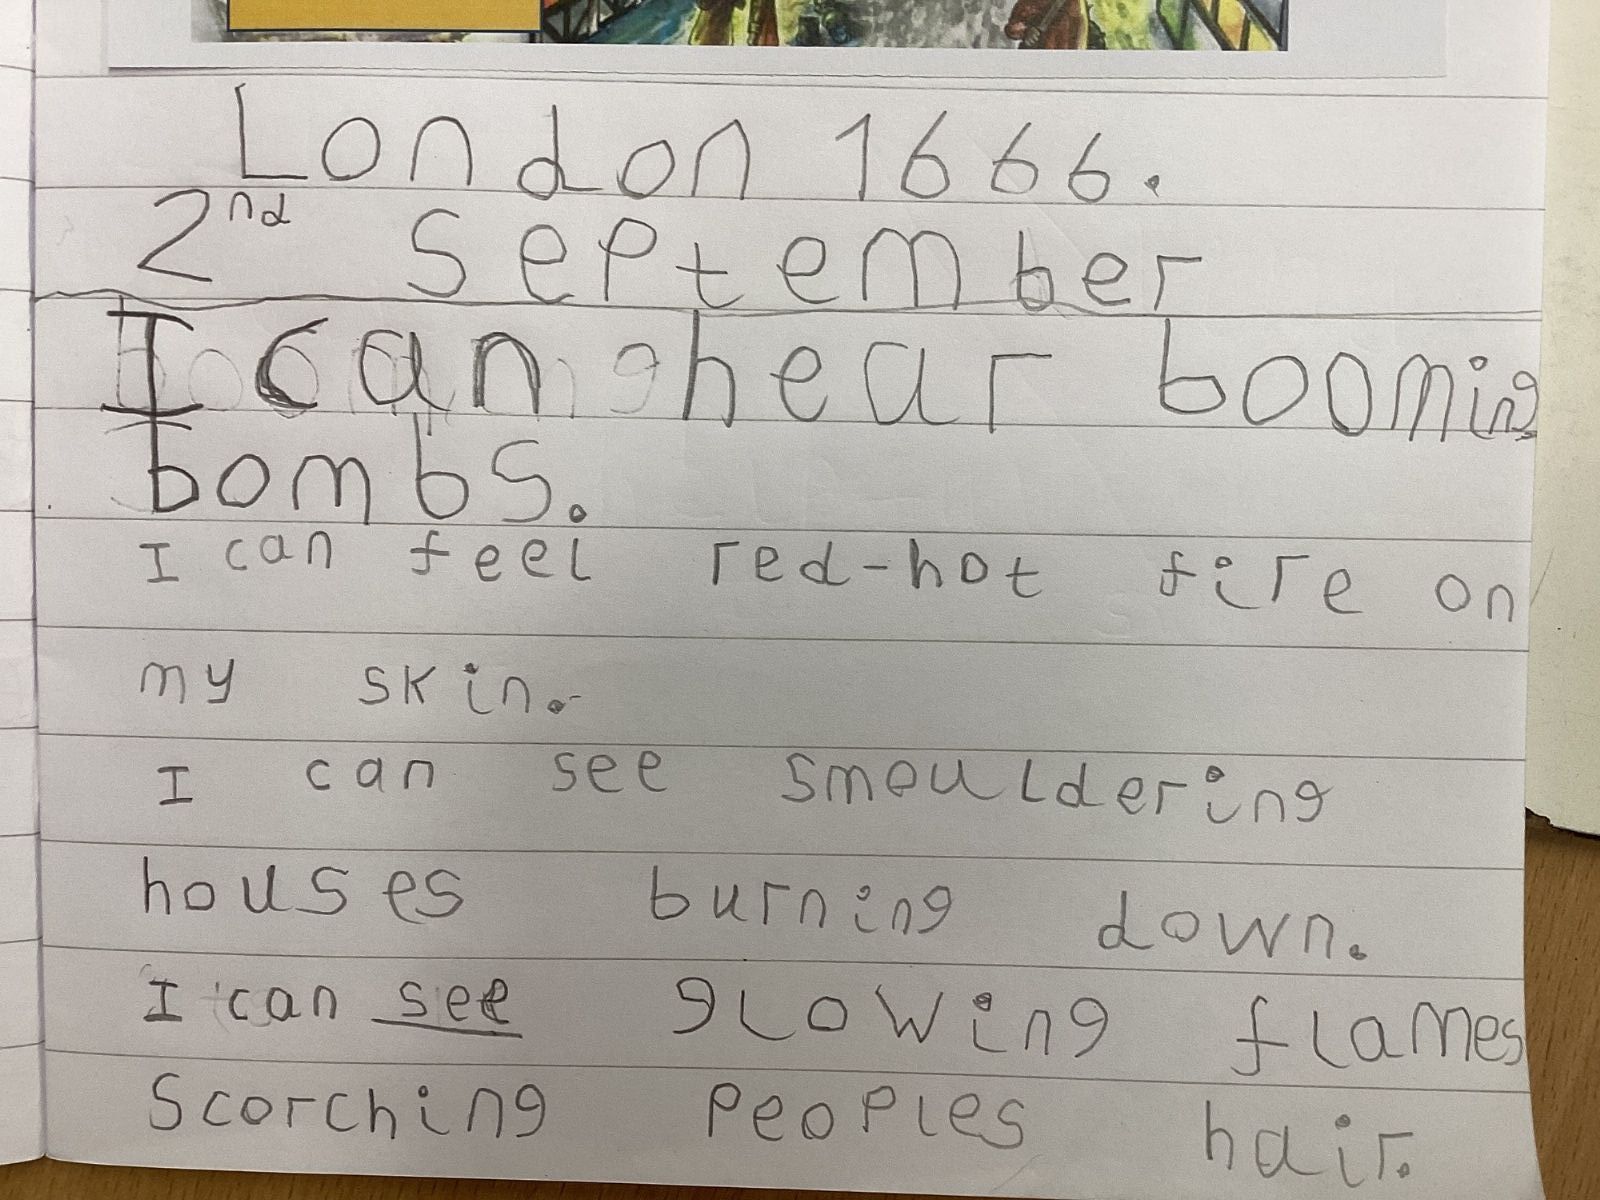 London 1666.
2nd September
I can hear booming
bombs.
I can feel red-hot fire on
my skin.
I can see smouldering
houses burning down.
I can see glowing flames
Scorching peoples hair.